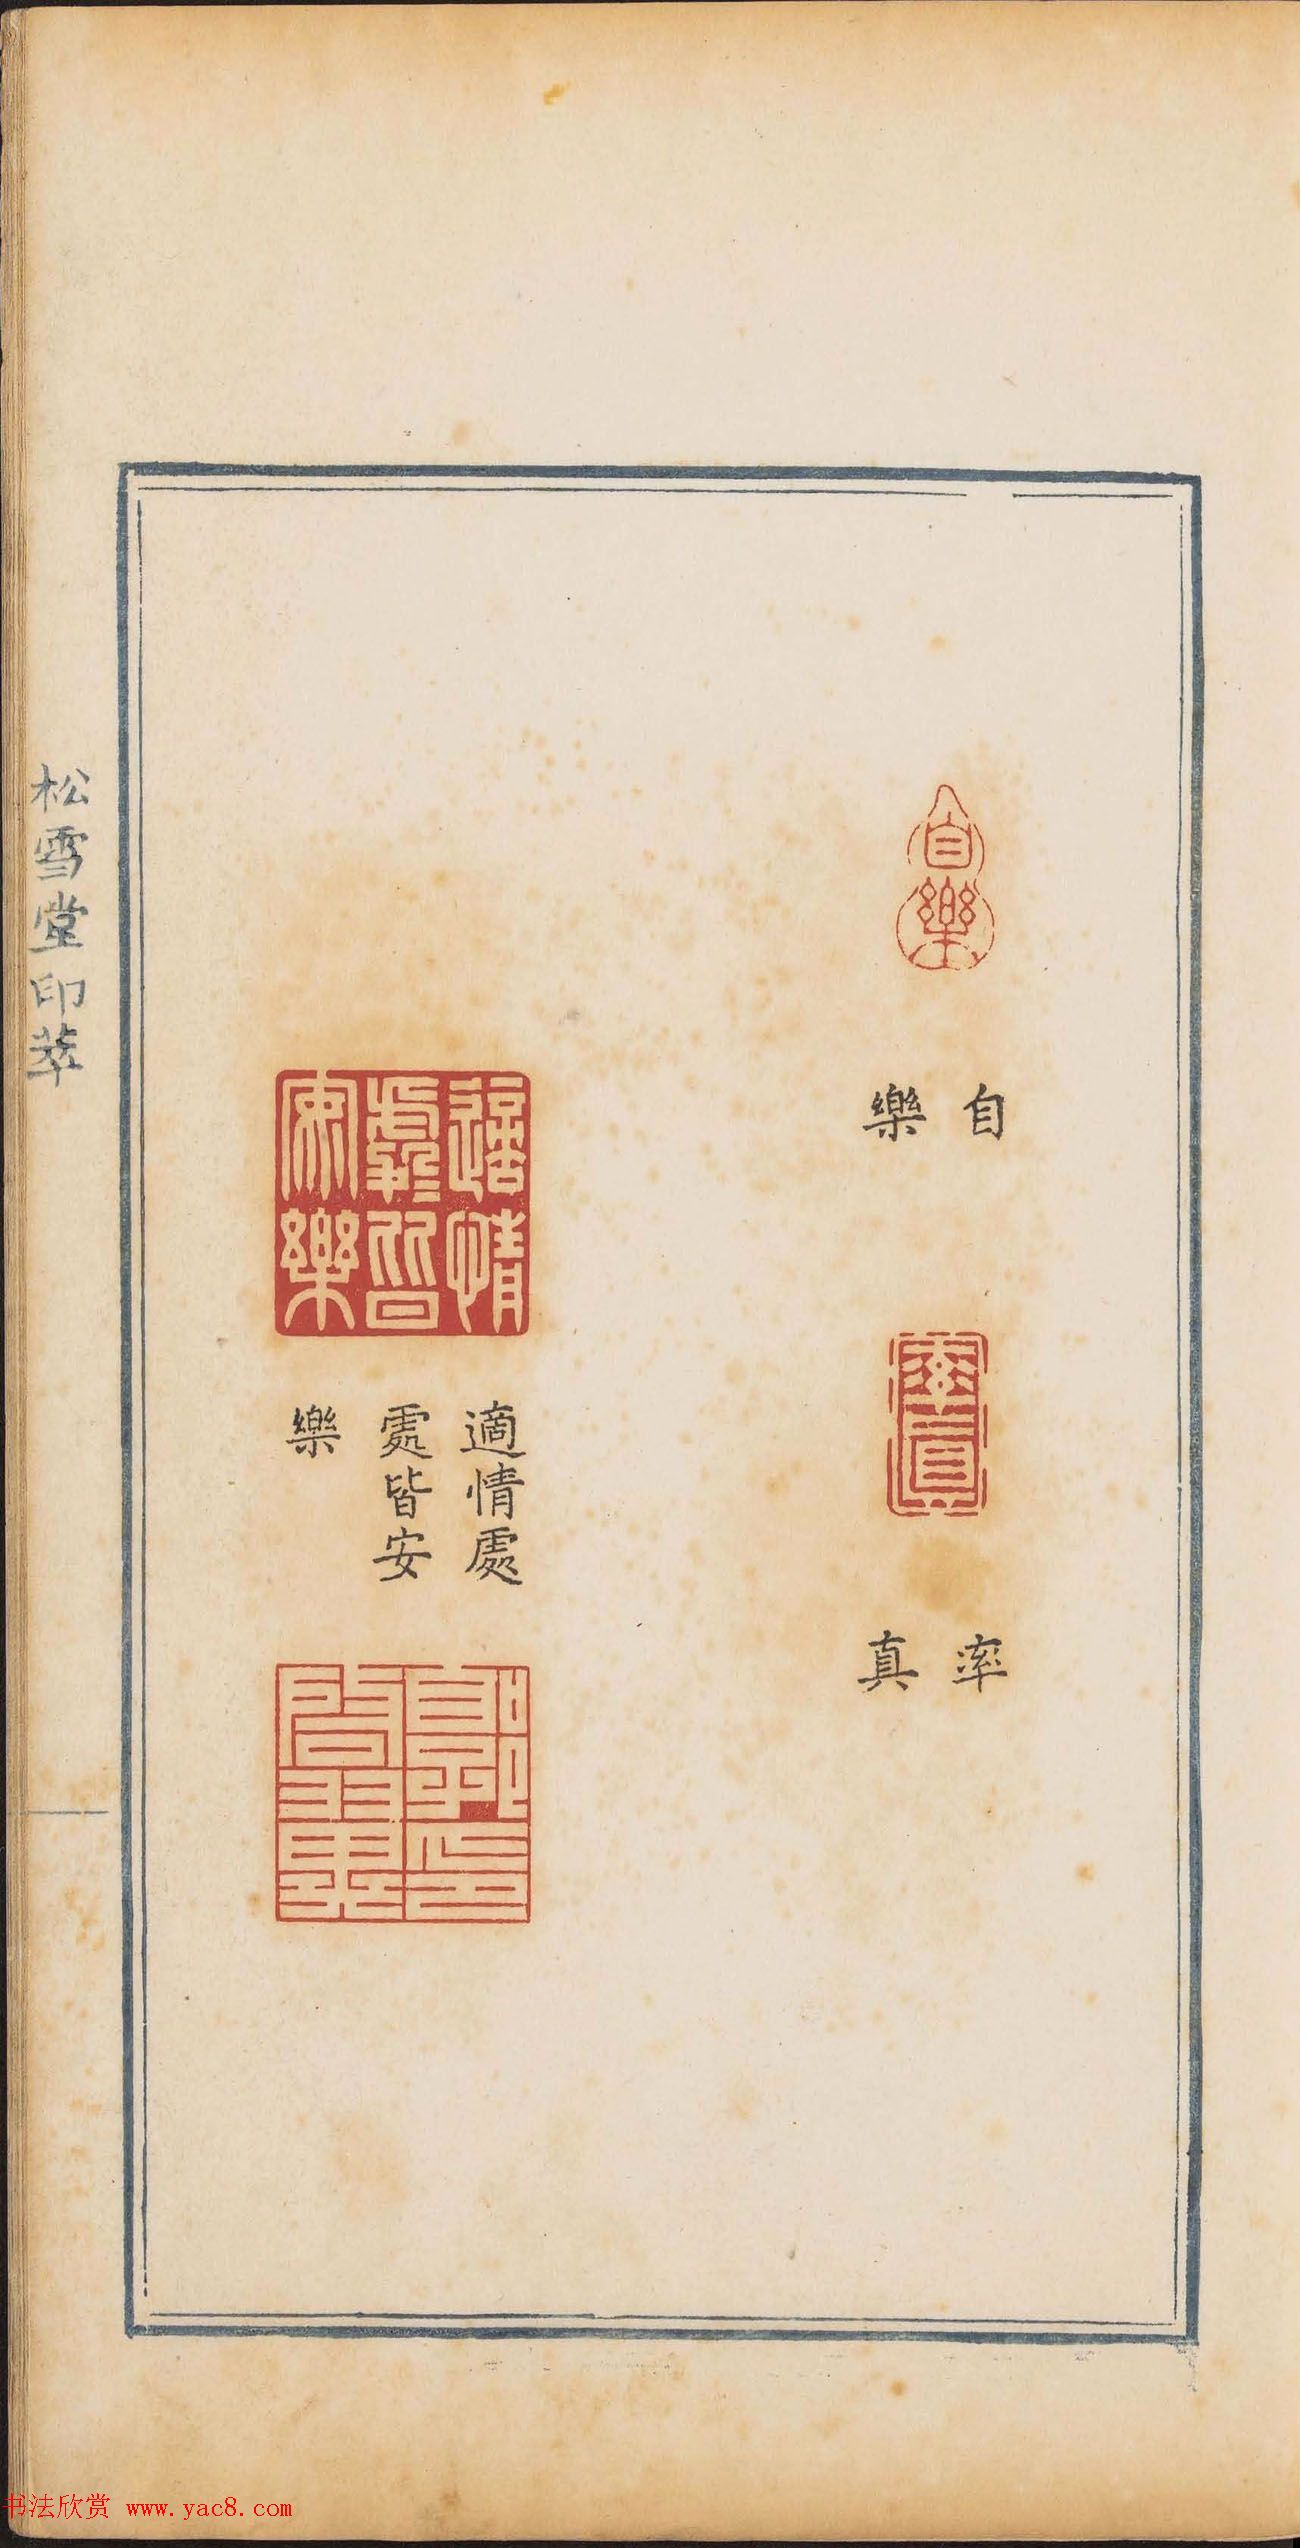 自樂
自
樂
率真
率
真
適情處皆安樂
適情處
處皆安
樂
松雪堂印萃
书法欣赏 www.yac8.com